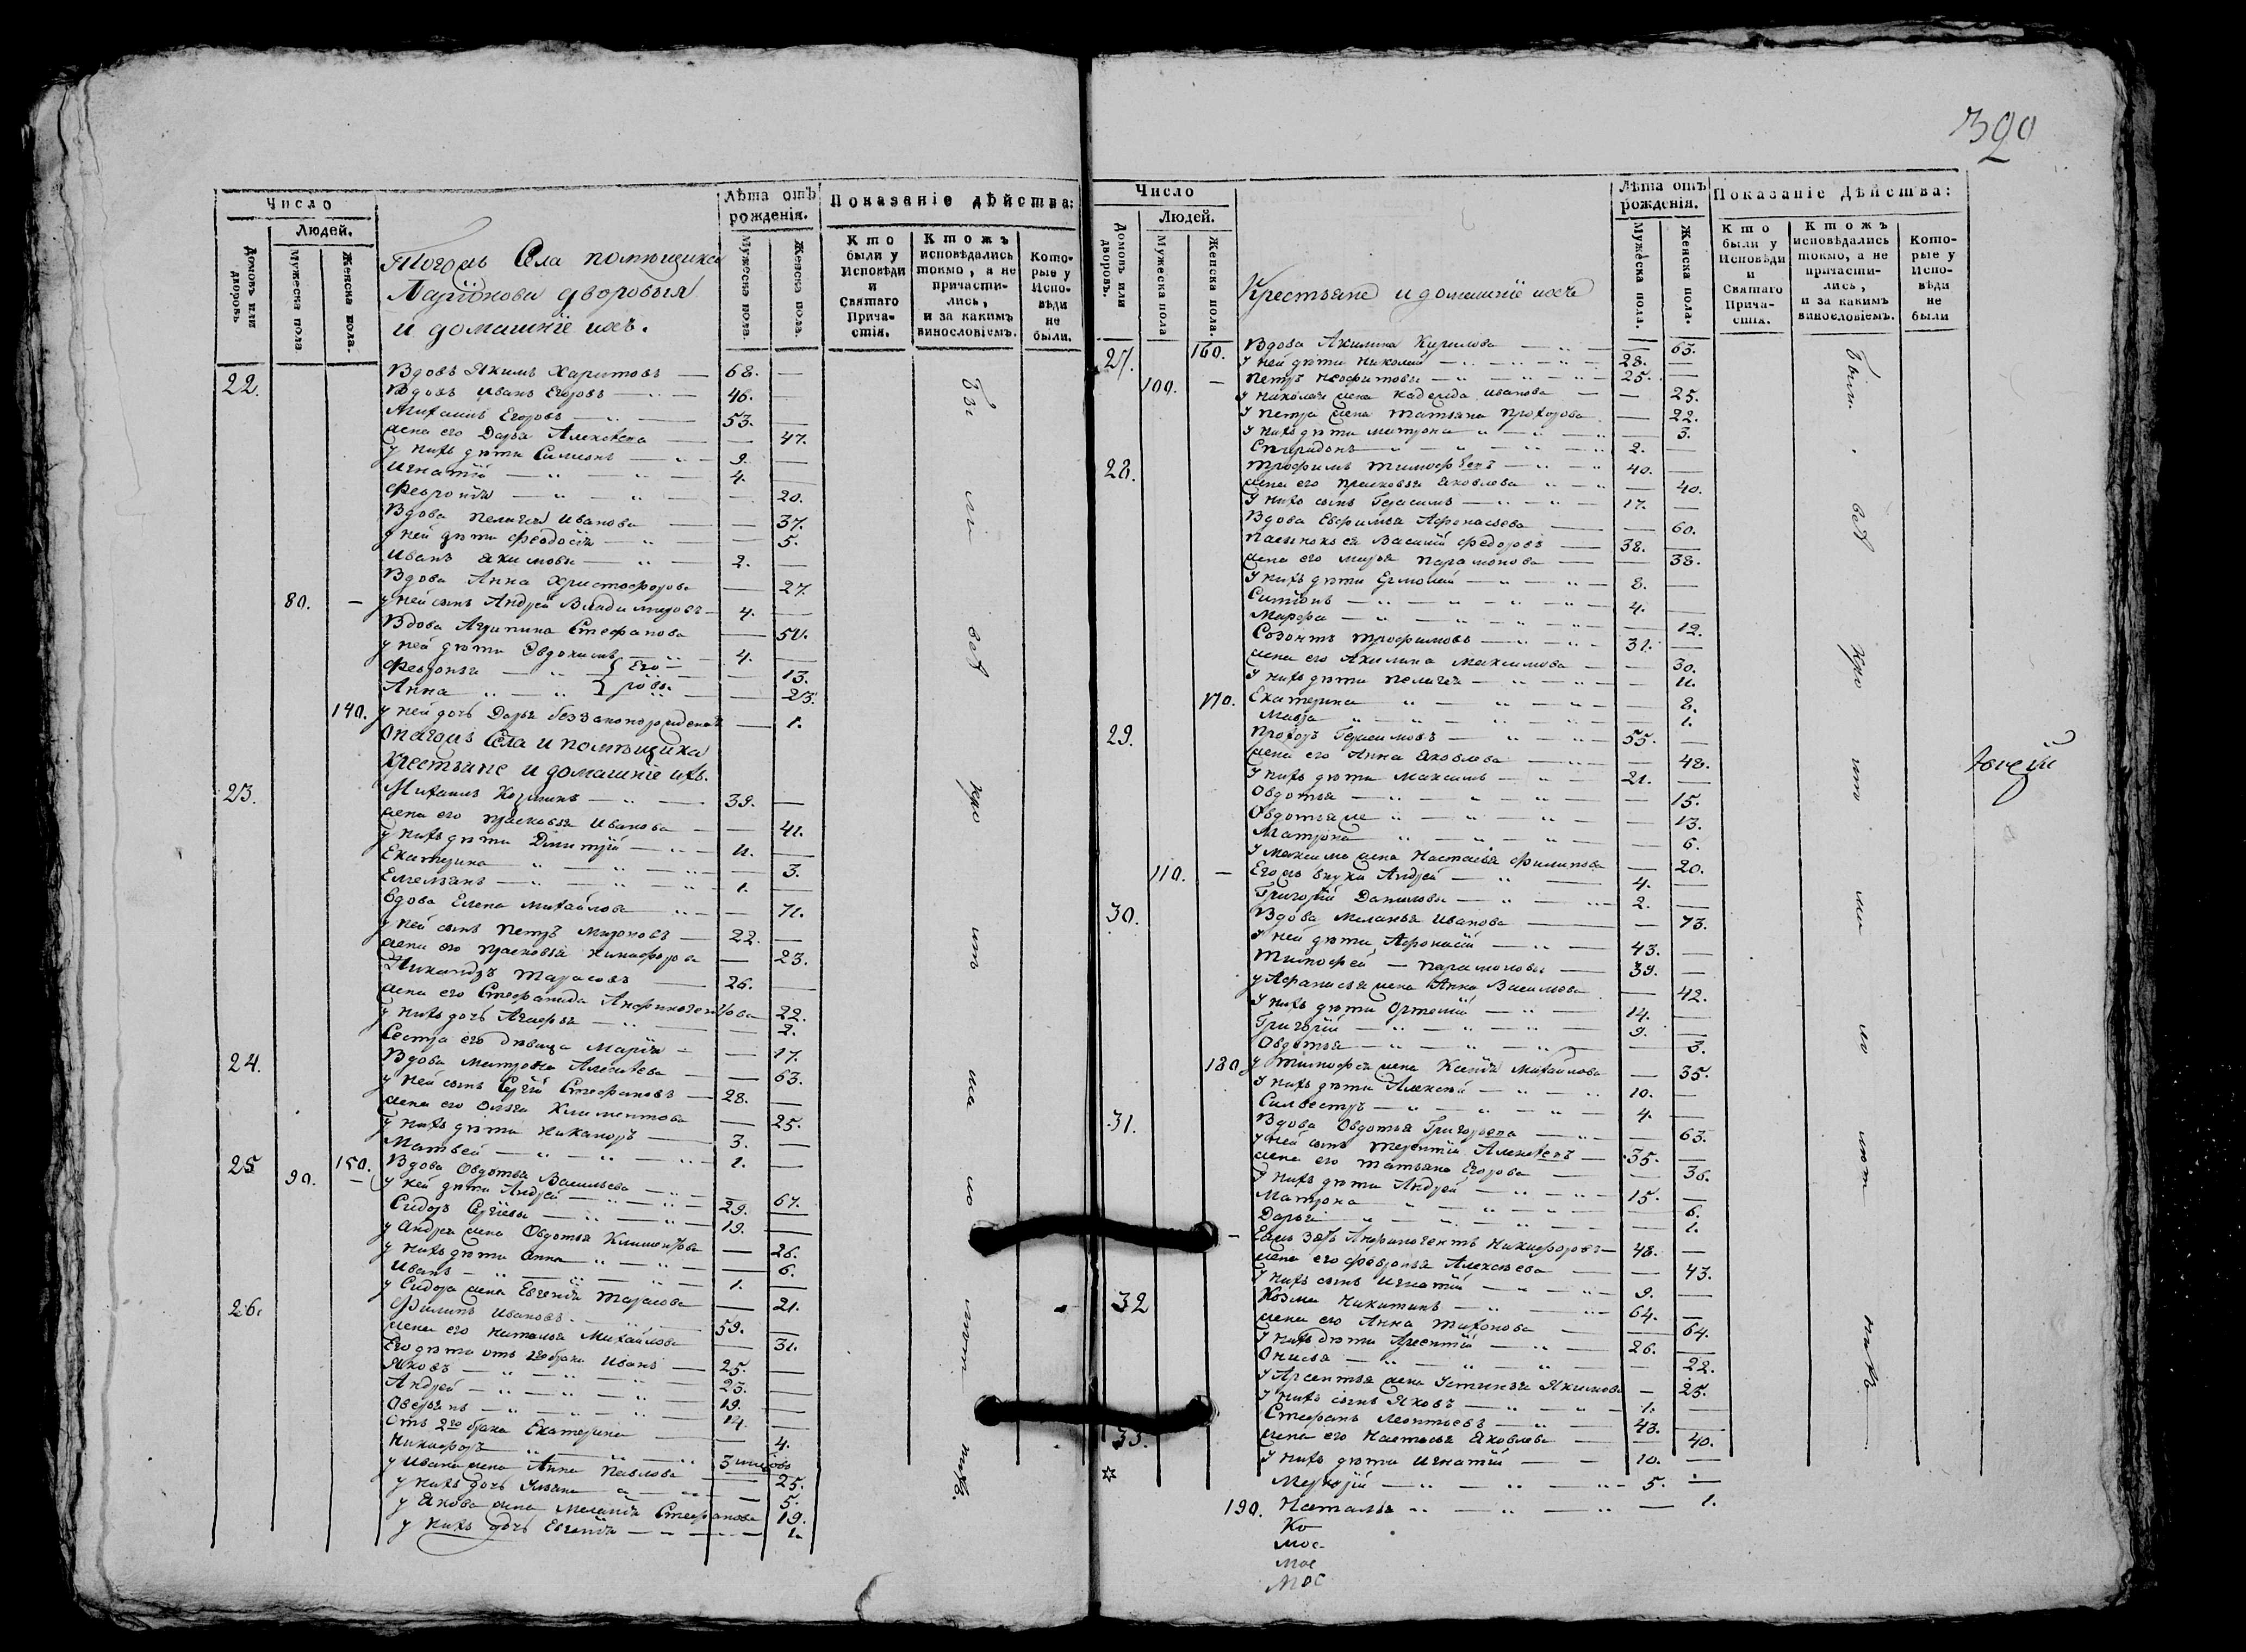 Число
Людей.
Домовъ или дворовъ
Мужеска пола
Женска пола.
Тогожъ Села помѣщика
Ларіонова дворовыя
и домашніе ихъ.
Лѣта отъ рожденія.
Мужеска пола
Женска пола.
Показаніе дѣйства:
Кто были у Исповѣди и Святаго Причастія.
Ктожъ исповѣдались токмо, а не причастились, и за какимъ винословіемъ.
Которые у Исповѣди не были.
22. Вдовъ Якимъ Харитовъ — 68. —
Вдовъ Иванъ Егоровъ — 46. —
Михаилъ Егоровъ — 53. —
жена его Дарья Алексѣева — 47.
у нихъ дѣти Симионъ — 9. —
Игнатій — 4. —
Феврония — 20.
Вдова Пелагея Иванова — 37.
у ней дѣти Феодосія — 5.
Иванъ Якимовы — 2. —
Вдова Анна Христофорова — 27.
80. — у ней сынъ Андрей Владимировъ — 4. —
Вдова Агрипина Стефанова — 50.
у ней дѣти Эвдокимъ — 4. —
Февронья — Его — 13.
Анна — ровы — 23.
140. у ней дочь Дарья беззаконорожденая — 1.
Онагожъ Села и помѣщика
Крестьяне и домашніе ихъ.
23. Михаилъ Козминъ — 39. —
жена его Прасковья Иванова — 41.
у нихъ дѣти Димитрій — 11. —
Екатерина — 3.
Емельянъ — 1. —
Вдова Елена Михайлова — 71.
у ней сынъ Петръ Мироновъ — 22. —
жена его Прасковья Никифорова — 23.
Никандръ Тарасовъ — 26. —
жена его Стефанида Анфиногентова — 22.
у нихъ дочь Агафья — 2.
Сестра его дѣвица Марія — 17.
24. Вдова Матрона Алексѣева — 63.
у ней сынъ Сергій Стефановъ — 28. —
жена его Ольга Климентова — 25.
у нихъ дѣти Никаноръ — 3. —
Матвей — 1. —
25 150. Вдова Овдотья Васильева — 67.
90. — у ней дѣти Андрей — 29. —
Сидоръ Сергіевы — 19. —
у Андрея жена Овдотья Климентова — 26.
у нихъ дѣти Анна — 6.
Иванъ — 1. —
у Сидора жена Евгенія Тарасова — 21.
26. Филипъ Ивановъ — 59. —
жена его Наталья Михайлова — 31.
Его дѣти отъ 1го брака Иванъ — 25. —
Яковъ — 23. —
Андрей — 19. —
Оверьянъ — 14. —
Отъ 2го брака Екатерина — 4.
Никифоръ — 3
у Ивана жена Анна Павлова — 25.
у нихъ дочь — 5.
у Якова жена Меланія Стефанова 19.
у нихъ дочь Евгенія — 1.
390
Число
Людей.
Домовъ или дворовъ.
Мужеска пола
Женска пола.
Крестьяне и домашніе ихъ
Лѣта отъ рожденія.
Мужеска пола.
Женска пола.
Показаніе Дѣйства:
Кто были у Исповѣди и Святаго Причастія.
Ктожъ исповѣдались токмо, а не причастились, и за какимъ винословіемъ.
Которые у Исповѣди не были
27. 160. Вдова Акилина Кирилова — 63.
у ней дѣти Николай — 28. —
100. — Петръ Неофитовы — 25. —
у Николая жена Надежда Иванова — 25.
у Петра жена Татьяна Прохорова — 22.
у нихъ дѣти Матрона — 3.
Спиридонъ — 2. —
28. Трофимъ Тимофѣевъ — 40. —
жена его Прасковья Яковлева — 40.
у нихъ сынъ Герасимъ — 17. —
Вдова Евфимья Афонасьева — 60.
Пасынокъ ея Василій Федоровъ — 38. —
жена его Марья Парамонова — 38.
у нихъ дѣти Ермолай — 8. —
Симіонъ — 4. —
Марфа — 12.
Созонтъ Трофимовъ — 31. —
жена его Акилина Максимова — 30.
у нихъ дѣти Пелагея — 11.
170. Екатерина — 8.
Мавра — 1.
29. Прохоръ Герасимовъ — 55. —
жена его Анна Яковлева — 48.
у нихъ дѣти Максимъ — 21. —
Овдотья — 15.
Овдотья же — 13.
Матрона — 6.
у Максима жена Настасья Филипова — 20.
110. — Егожъ внуки Андрей — 4. —
Григорій Даниловы — 2. —
30. Вдова Меланья Иванова — 73.
у ней дѣти Афонасій — 43. —
Тимофей — Парамоновы — 39. —
у Афанасья жена Анна Васильева — 42.
у нихъ дѣти Ортемій — 14. —
Григорій — 9. —
Овдотья — 3.
180 у Тимофея жена Ксенія Михайлова — 35.
у нихъ дѣти Алексѣй — 10. —
Силвестръ — 4. —
31. Вдова Овдотья Григорьева — 63.
у ней сынъ Терентій Алексѣевъ — 35. —
жена его Татьяна Егорова — 36.
у нихъ дѣти Андрей — 15. —
Матрона — 6.
Дарья — 1.
— Еяжъ зять Анфиногентъ Никифоровъ — 48. —
жена его Февронья Алексѣева — 43.
у нихъ сынъ Игнатій — 9. —
32 Козма Никитинъ — 64. —
жена его Анна Тихонова — 64.
у нихъ дѣти Арсентій — 26. —
Онисья — 22.
у Арсентья жена Устинья Якимова — 25.
у нихъ сынъ Яковъ — 1. —
33. Стефанъ Леонтьевъ — 43. —
жена его Настасья Яковлева — 40.
у нихъ дѣти Игнатій — 10. —
Меркурій — 5. —
190. Наталья — 1.
Ко
Мос-
Мос
Мос